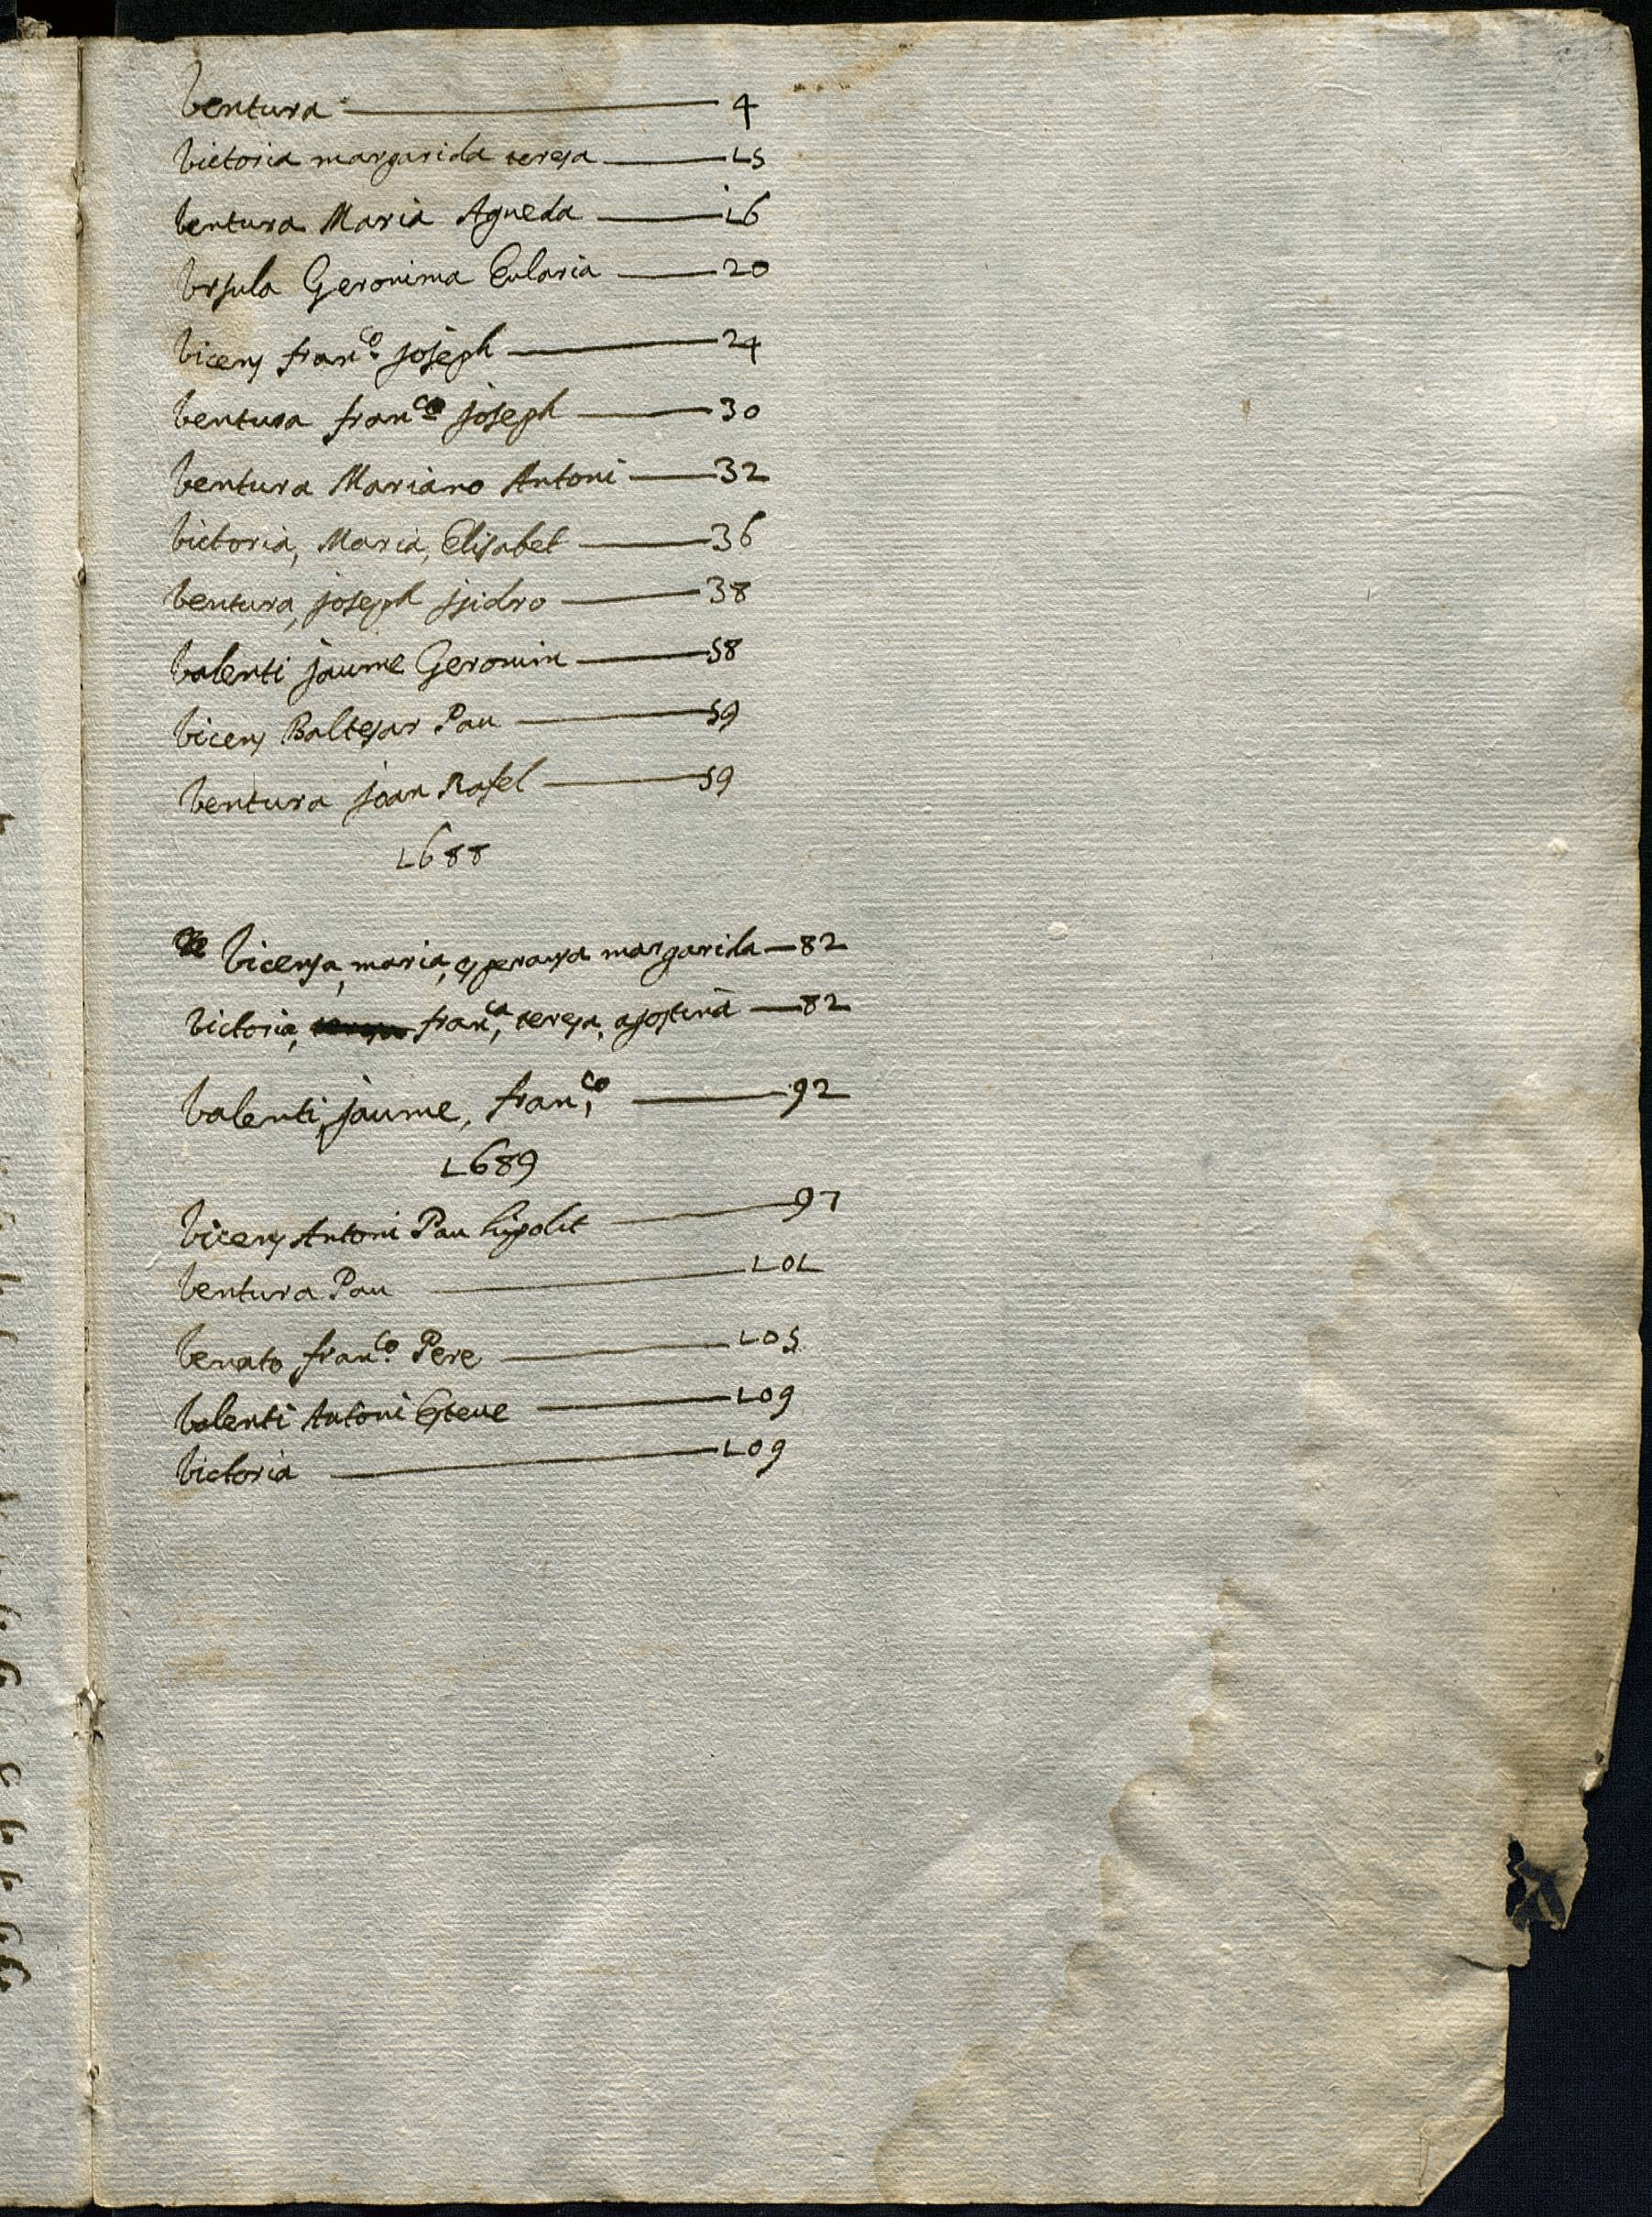 Ventura — 4
Victoria margarida teresa — 15
Ventura Maria Agueda — 16
Vrsula Geronima Eularia — 20
Vicens fran.co joseph — 24
Ventura fran.co joseph — 30
Ventura Mariano Antoni — 32
Victoria, Maria, Elisabet — 36
Ventura, joseph jsidro — 38
Valenti jaume Geronim — 58
Vicens Baltesar Pau — 59
Ventura joan Rafel — 59
1688
Vicensa, maria, esperansa margarida — 82
Victoria, fran.ca, teresa, agostina — 82
Valenti, jaume, fran.co — 92
1689
Vicens Antoni Pau hipolit — 97
Ventura Pau — 101
Venato fran.co Pere — 105
Valenti Antoni Esteue — 109
Victoria — 109